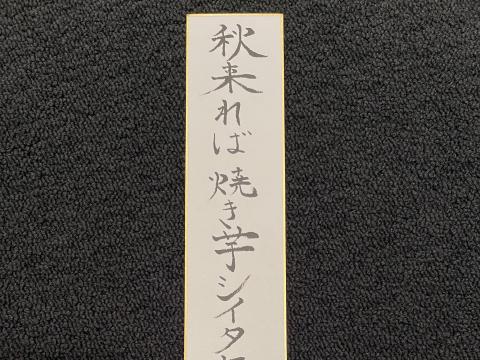 秋来れば焼き芋シイタ